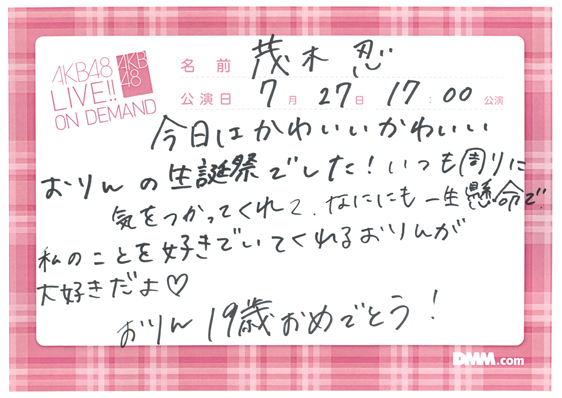 AKB48
LIVE!!
ON DEMAND
AKB
48
名前 茂木忍
公演日 7月27日 17:00公演
今日はかわいいかわいい
おりんの生誕祭でした!いつも周りに
気をつかってくれて、なににも一生懸命で
私のことを好きでいてくれるおりんが
大好きだよ♡
おりん19歳おめでとう!
DMM.com